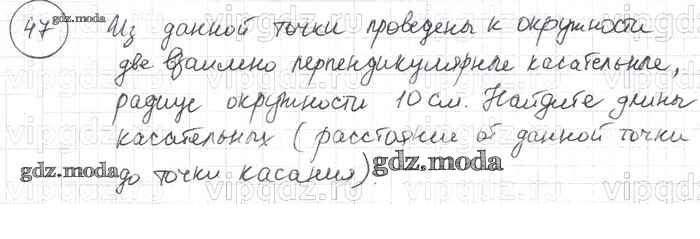 47 gdz.moda Из данной точки проведены к окружности
две взаимно перпендикулярные касательные,
радиус окружности 10 см. Найдите длины
касательных (расстояние от данной точки
gdz.moda до точки касания). gdz.moda